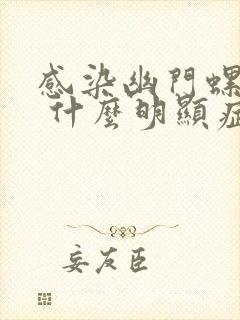 感染幽門螺
什麼明顯症
妄友臣